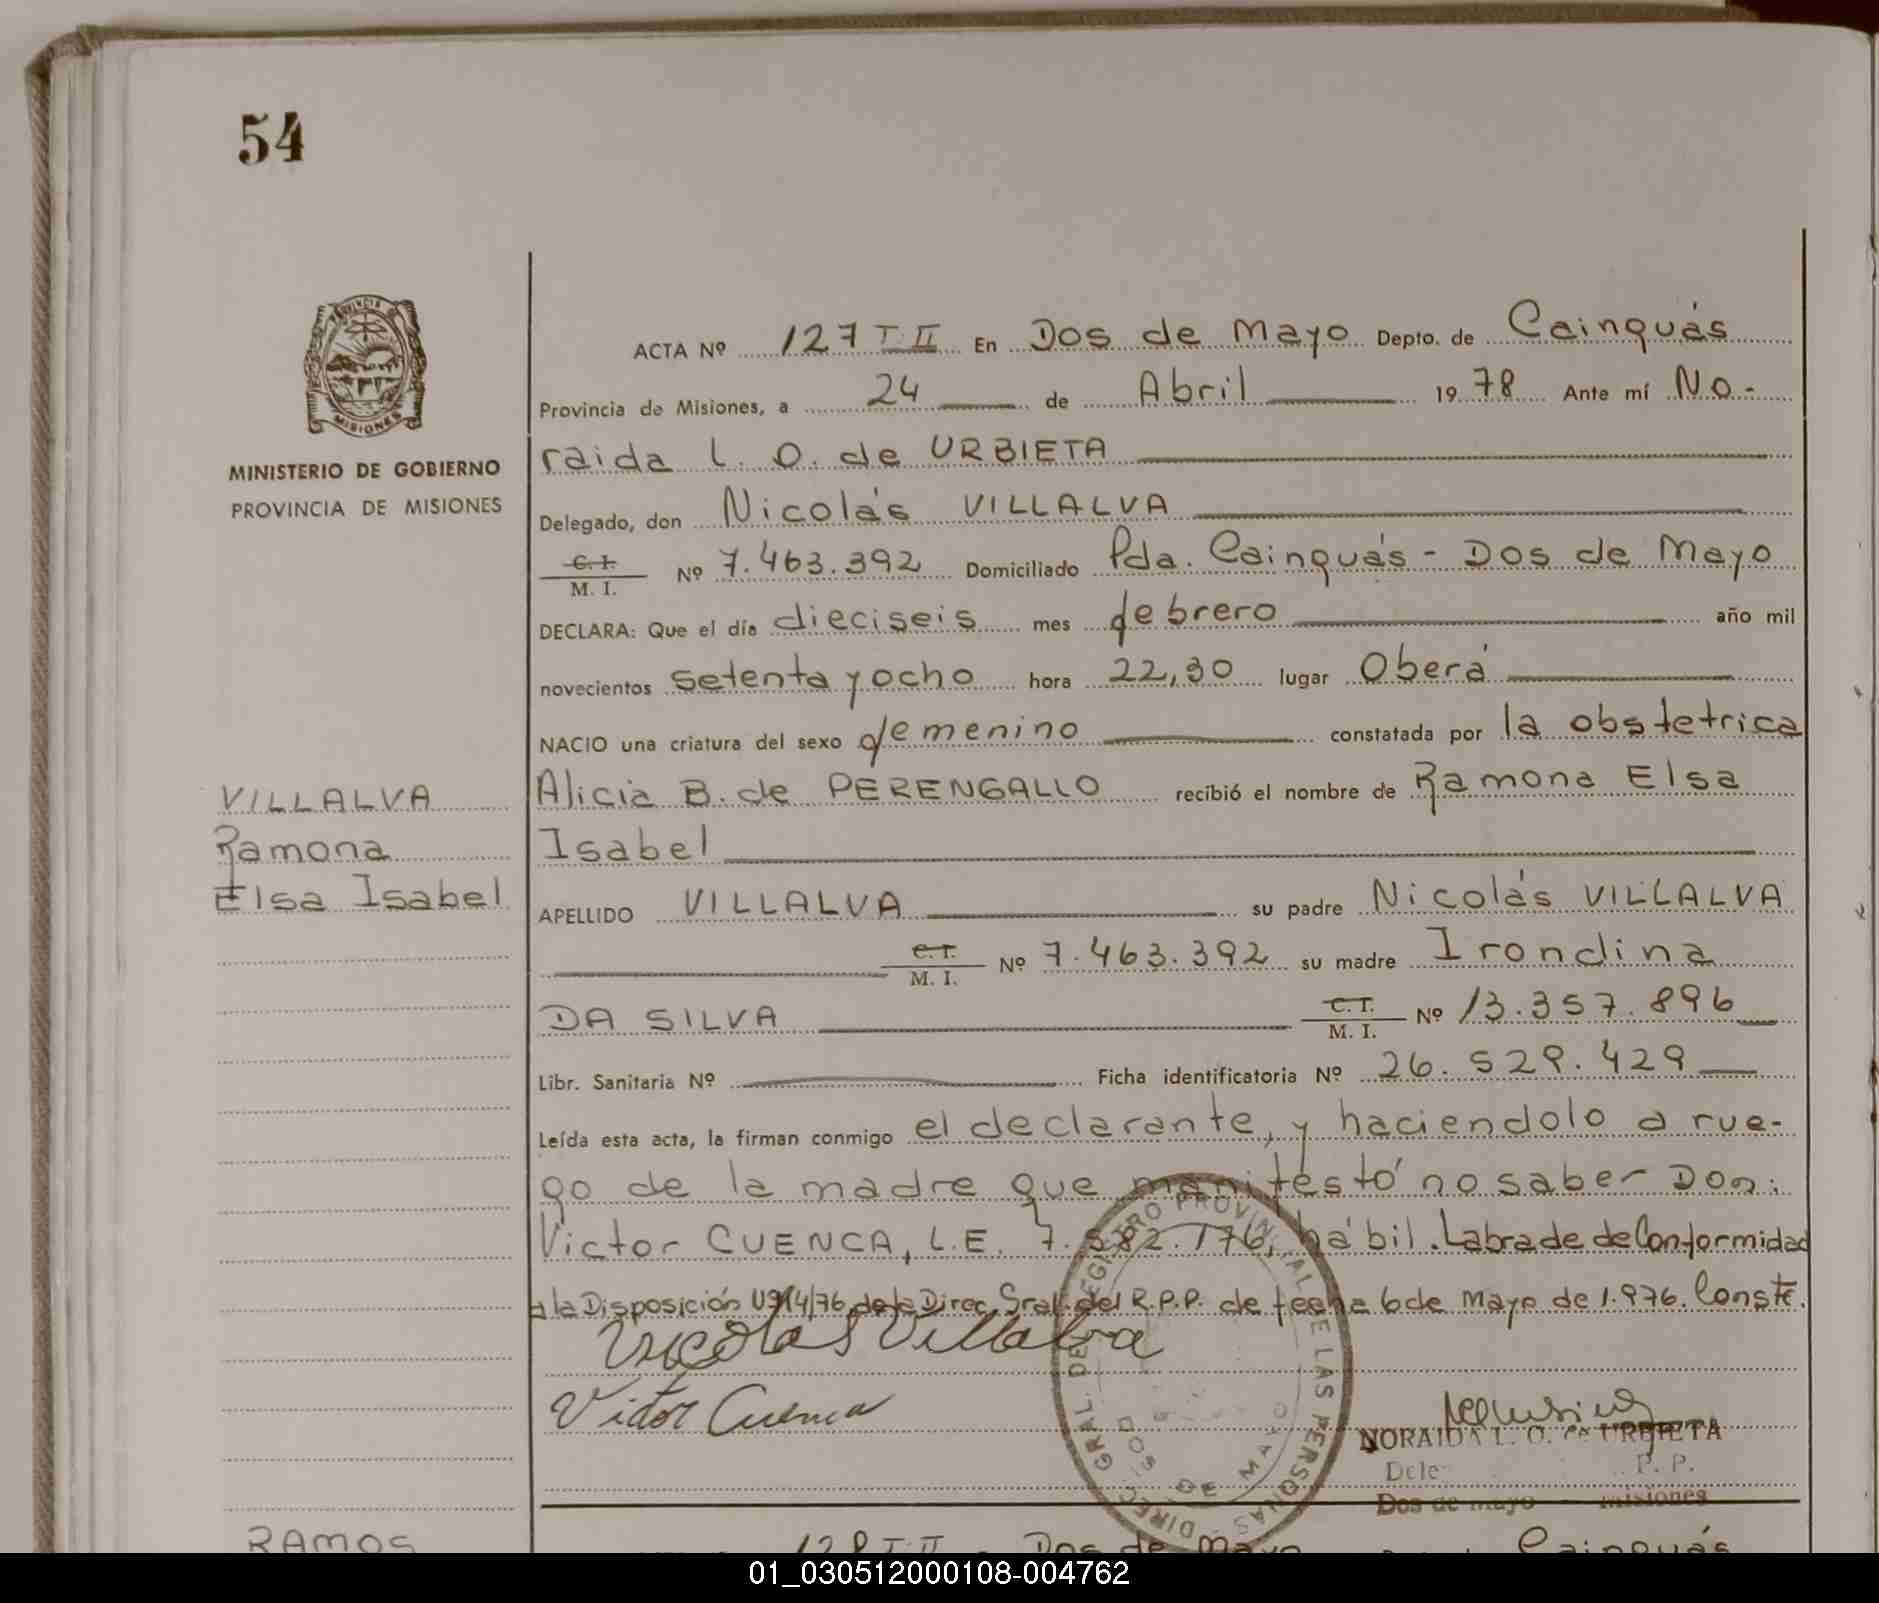 54
PROVINCIA
MISIONES
MINISTERIO DE GOBIERNO
PROVINCIA DE MISIONES
ACTA Nº 127 T II En Dos de Mayo Depto. de Cainguás
Provincia de Misiones, a 24 de Abril 1978 Ante mí No-
raida L. O. de URBIETA
Delegado, don Nicolás VILLALVA
C. I.
M. I. Nº 7.463.392 Domiciliado Pda. Cainguás - Dos de Mayo
DECLARA: Que el día dieciseis mes febrero año mil
novecientos setenta y ocho hora 22,30 lugar Oberá
NACIO una criatura del sexo femenino constatada por la obstetrica
VILLALVA
Ramona
Elsa Isabel
Alicia B. de PERENGALLO recibió el nombre de Ramona Elsa
Isabel
APELLIDO VILLALVA su padre Nicolás VILLALVA
C. I.
M. I. Nº 7.463.392 su madre Irondina
DA SILVA C. I.
M. I. Nº 13.357.896
Libr. Sanitaria Nº Ficha identificatoria Nº 26.529.429
Leída esta acta, la firman conmigo el declarante, y haciendolo a rue-
go de la madre que manifestó no saber Don:
Victor CUENCA, L.E. 7.582.176, hábil. Labrade de Conformidad
a la Disposición 14/76 de la Direc. Gral. del R.P.P. de fecha 6 de Mayo de 1.976. Conste.
Nicolas Villalva
Victor Cuenca
DIREC. GRAL. DEL REGISTRO PROVINCIAL DE LAS PERSONAS
DOS DE MAYO
NORAIDA L. O. de URBIETA
Dele P. P.
Dos de mayo misiones
RAMOS
128 T II Dos de Mayo Cainguás
01_030512000108-004762